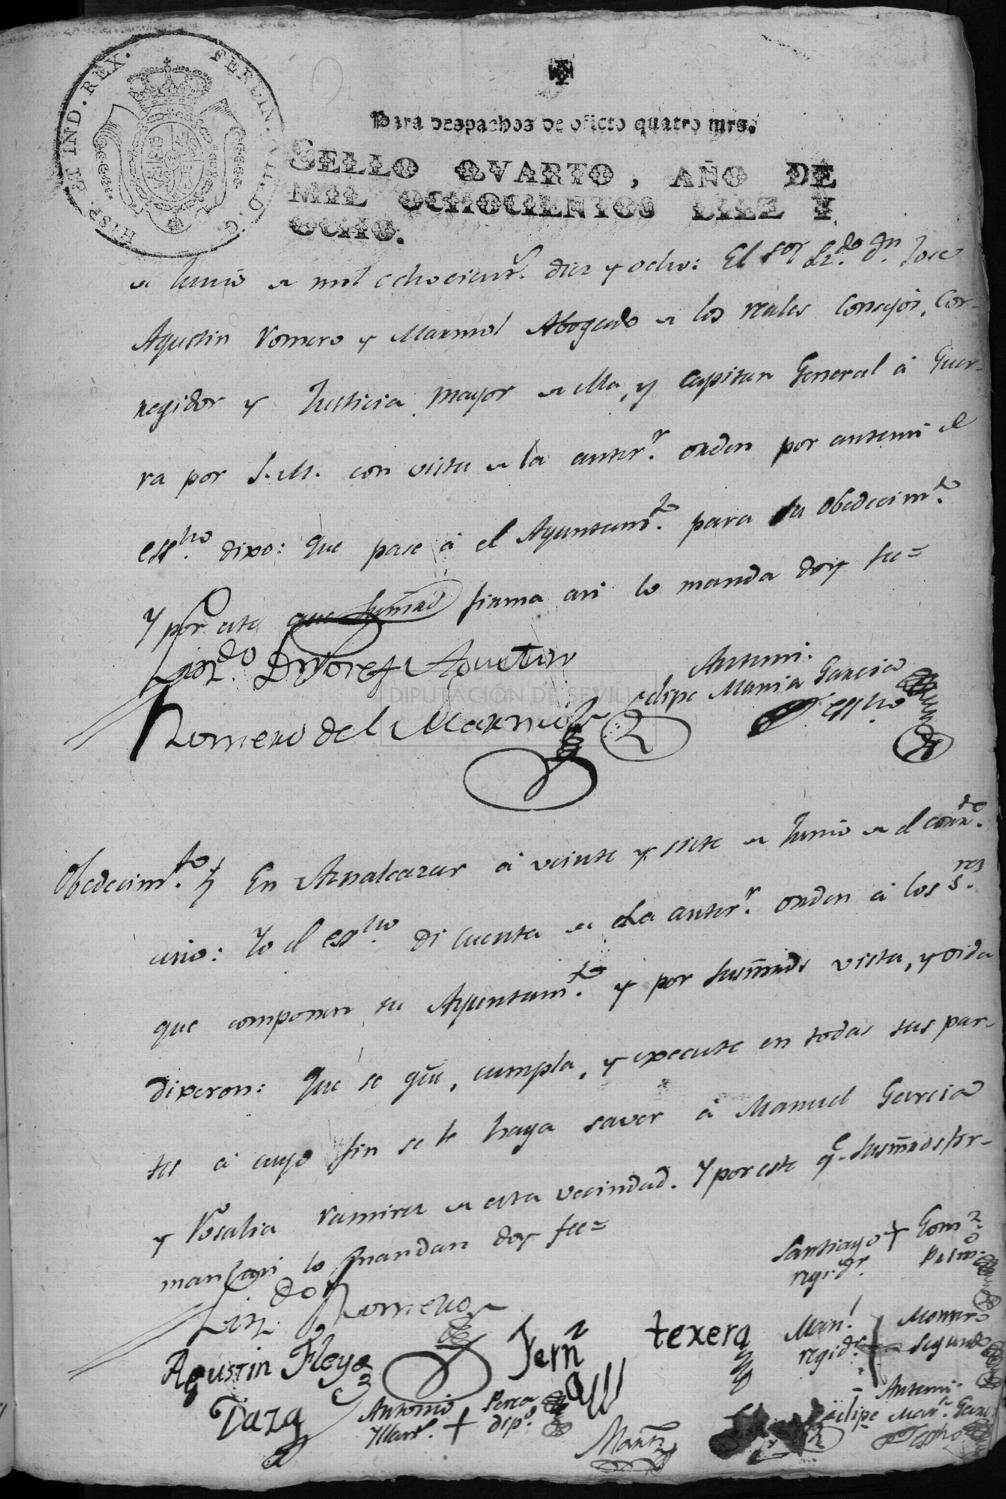 HISP. ET IND. REX. FERDIN. VII. D. G.
Para despachos de oficio quatro mrs.
SELLO QVARTO, AÑO DE
MIL OCHOCIENTOS DIEZ Y
OCHO.
Junio mil ochocient.s diez y ocho: El Sor Lz.do Dn Jose
Agustin Romero y Marmol Abogado los reales Consejos, Cor-
regidor y Justicia mayor ella, y capitan General á Guer-
ra por S. M. con vista la anter.r orden por antemi el
ess.no dixo: Que pase á el Ayuntam.to para su Obedecim.to
Y por esta que firma asi lo manda doy fee=
Liz.do Dn Josef Agustin
Romero del Marmol
Antemi.
Felipe Maria Garcia
essno
DIPUTACIÓN DE SEVILLA
Obedecim.to En Aznalcazar á veinte y siete Junio el corr.te
año: Yo el ess.no di cuenta la anter.r orden á los S.res
que componen su Ayuntam.to y por susmrds vista, y oida
dixeron: Que se gūe, cumpla, y execute en todas sus par-
tes á cuyo fin se le haga saver á Manuel Garcia
y Rosalia Ramirez esta vecindad. Y por este q.e susmrds fir-
man asi lo mandan doy fee=
Santiago + Gom.z
regid.r
Liz.do Romero
Agustin
Fern texera
Man.l + Romero
regid.r segundo
Taza
Antonio + Perea
Mart. dip.o
Martz
Antemi.
Felipe Mar.a Garcia
essno